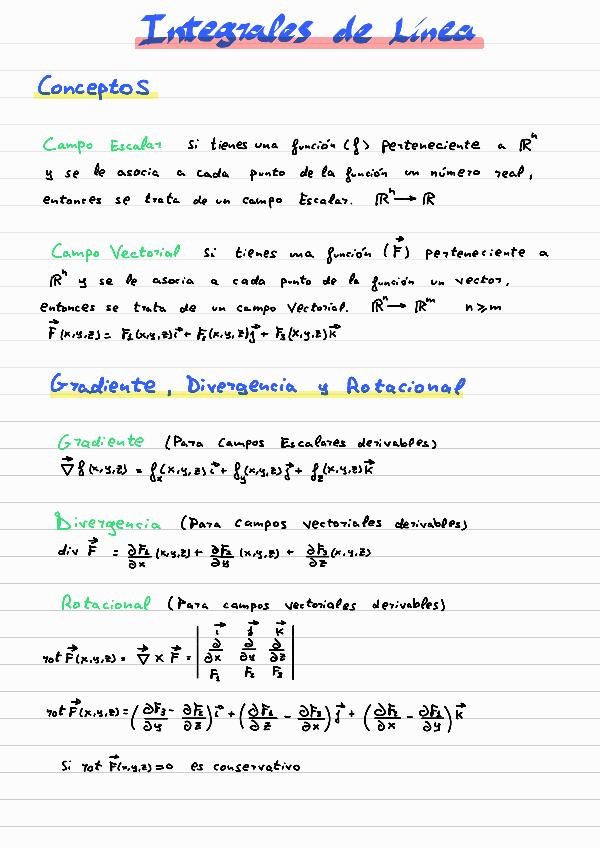 Integrales de Línea
Conceptos
Campo Escalar Si tienes una función (f) perteneciente a ℝⁿ
y se le asocia a cada punto de la función un número real,
entonces se trata de un campo Escalar. ℝⁿ → ℝ
Campo Vectorial Si tienes una función (F⃗) perteneciente a
ℝⁿ y se le asocia a cada punto de la función un vector,
entonces se trata de un campo Vectorial. ℝⁿ → ℝᵐ n≥m
F⃗(x,y,z) = F₁(x,y,z)i⃗ + F₂(x,y,z)j⃗ + F₃(x,y,z)k⃗
Gradiente, Divergencia y Rotacional
Gradiente (Para Campos Escalares derivables)
∇⃗f(x,y,z) = fₓ(x,y,z)i⃗ + f_y(x,y,z)j⃗ + f_z(x,y,z)k⃗
Divergencia (Para campos vectoriales derivables)
div F⃗ = ∂F₁/∂x (x,y,z) + ∂F₂/∂y (x,y,z) + ∂F₃/∂z (x,y,z)
Rotacional (Para campos vectoriales derivables)
rot F⃗(x,y,z) = ∇⃗ × F⃗ = | i⃗ j⃗ k⃗ |
| ∂/∂x ∂/∂y ∂/∂z |
| F₁ F₂ F₃ |
rot F⃗(x,y,z) = (∂F₃/∂y - ∂F₂/∂z) i⃗ + (∂F₁/∂z - ∂F₃/∂x) j⃗ + (∂F₂/∂x - ∂F₁/∂y) k⃗
Si rot F⃗(x,y,z) = 0 es conservativo